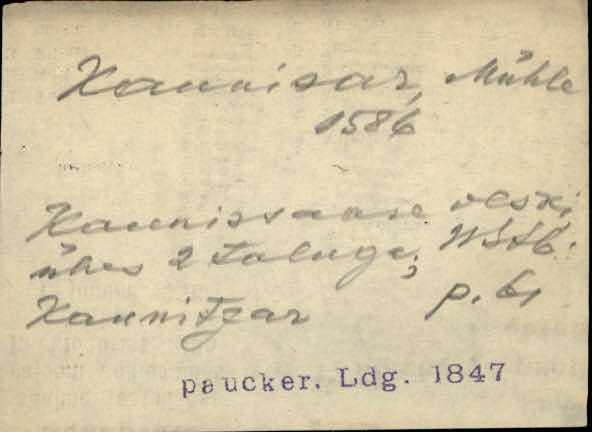 Kaunisar, Mühle
1586
Kaunissaare veski,
ühes 2 taluga; Wstb.
Kaunitzar p. 61
paucker. Ldg. 1847